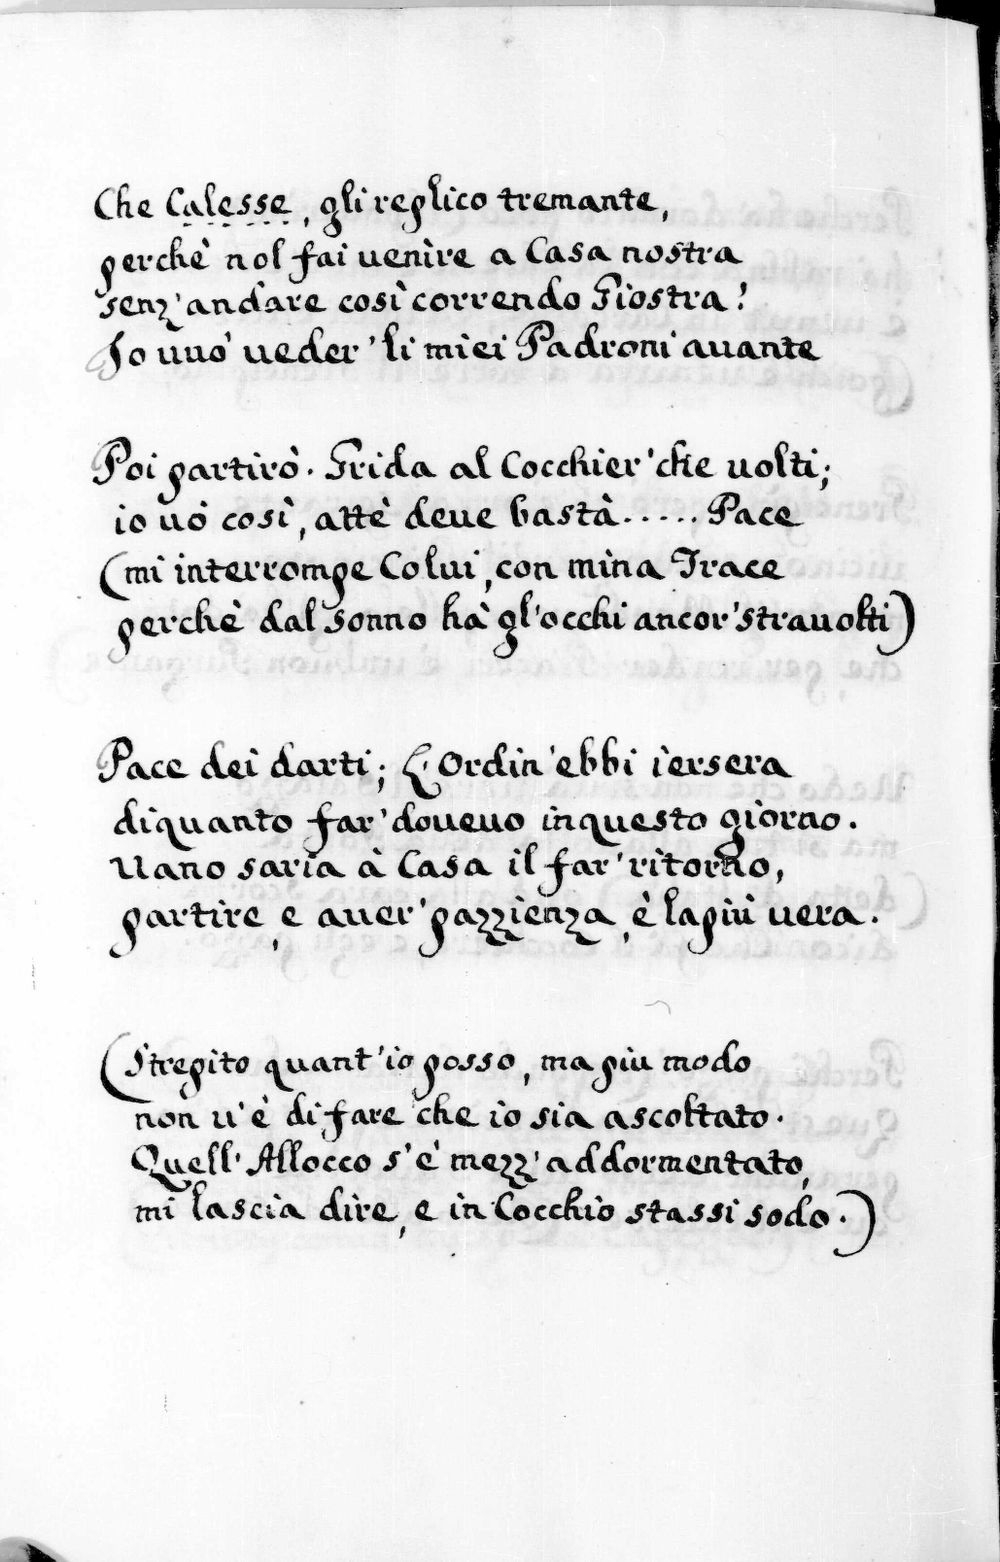 Che Calesse, gli replico tremante,
perchè nol fai venìre a Casa nostra
senz'andare così correndo Giostra!
Io vuò veder' li miei Padroni avante
Poi partirò. Grida al Cocchier' che volti;
io vò così, attè deve bastà..... Pace
(mi interrompe Colui, con mina Trace
perchè dal sonno hà gl'occhi ancor' stravolti)
Pace dei darti; L'Ordin' ebbi iersera
di quanto far' dovevo in questo giorno.
Vano saria à Casa il far' ritorno,
partire, e aver' pazzienza, e la più vera.
(Strepito quant' io posso, ma più modo
non v'è di fare che io sia ascoltato.
Quell' Allocco s'è mezz' addormentato,
mi lascia dire, e in Cocchio stassi sodo.)